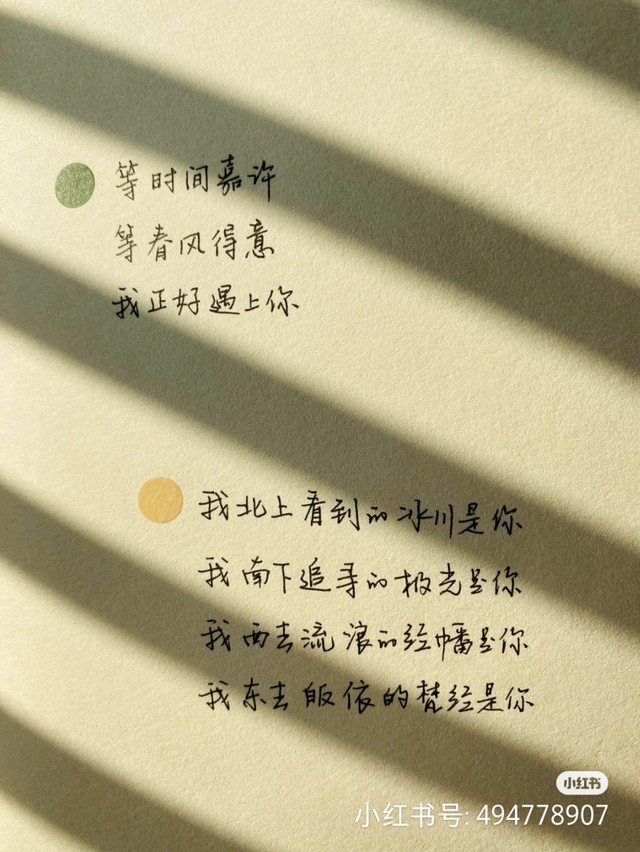 等时间嘉许
等春风得意
我正好遇上你
我北上看到的冰川是你
我南下追寻的极光是你
我西去流浪的经幡是你
我东去皈依的梵经是你
小红书
小红书号: 494778907